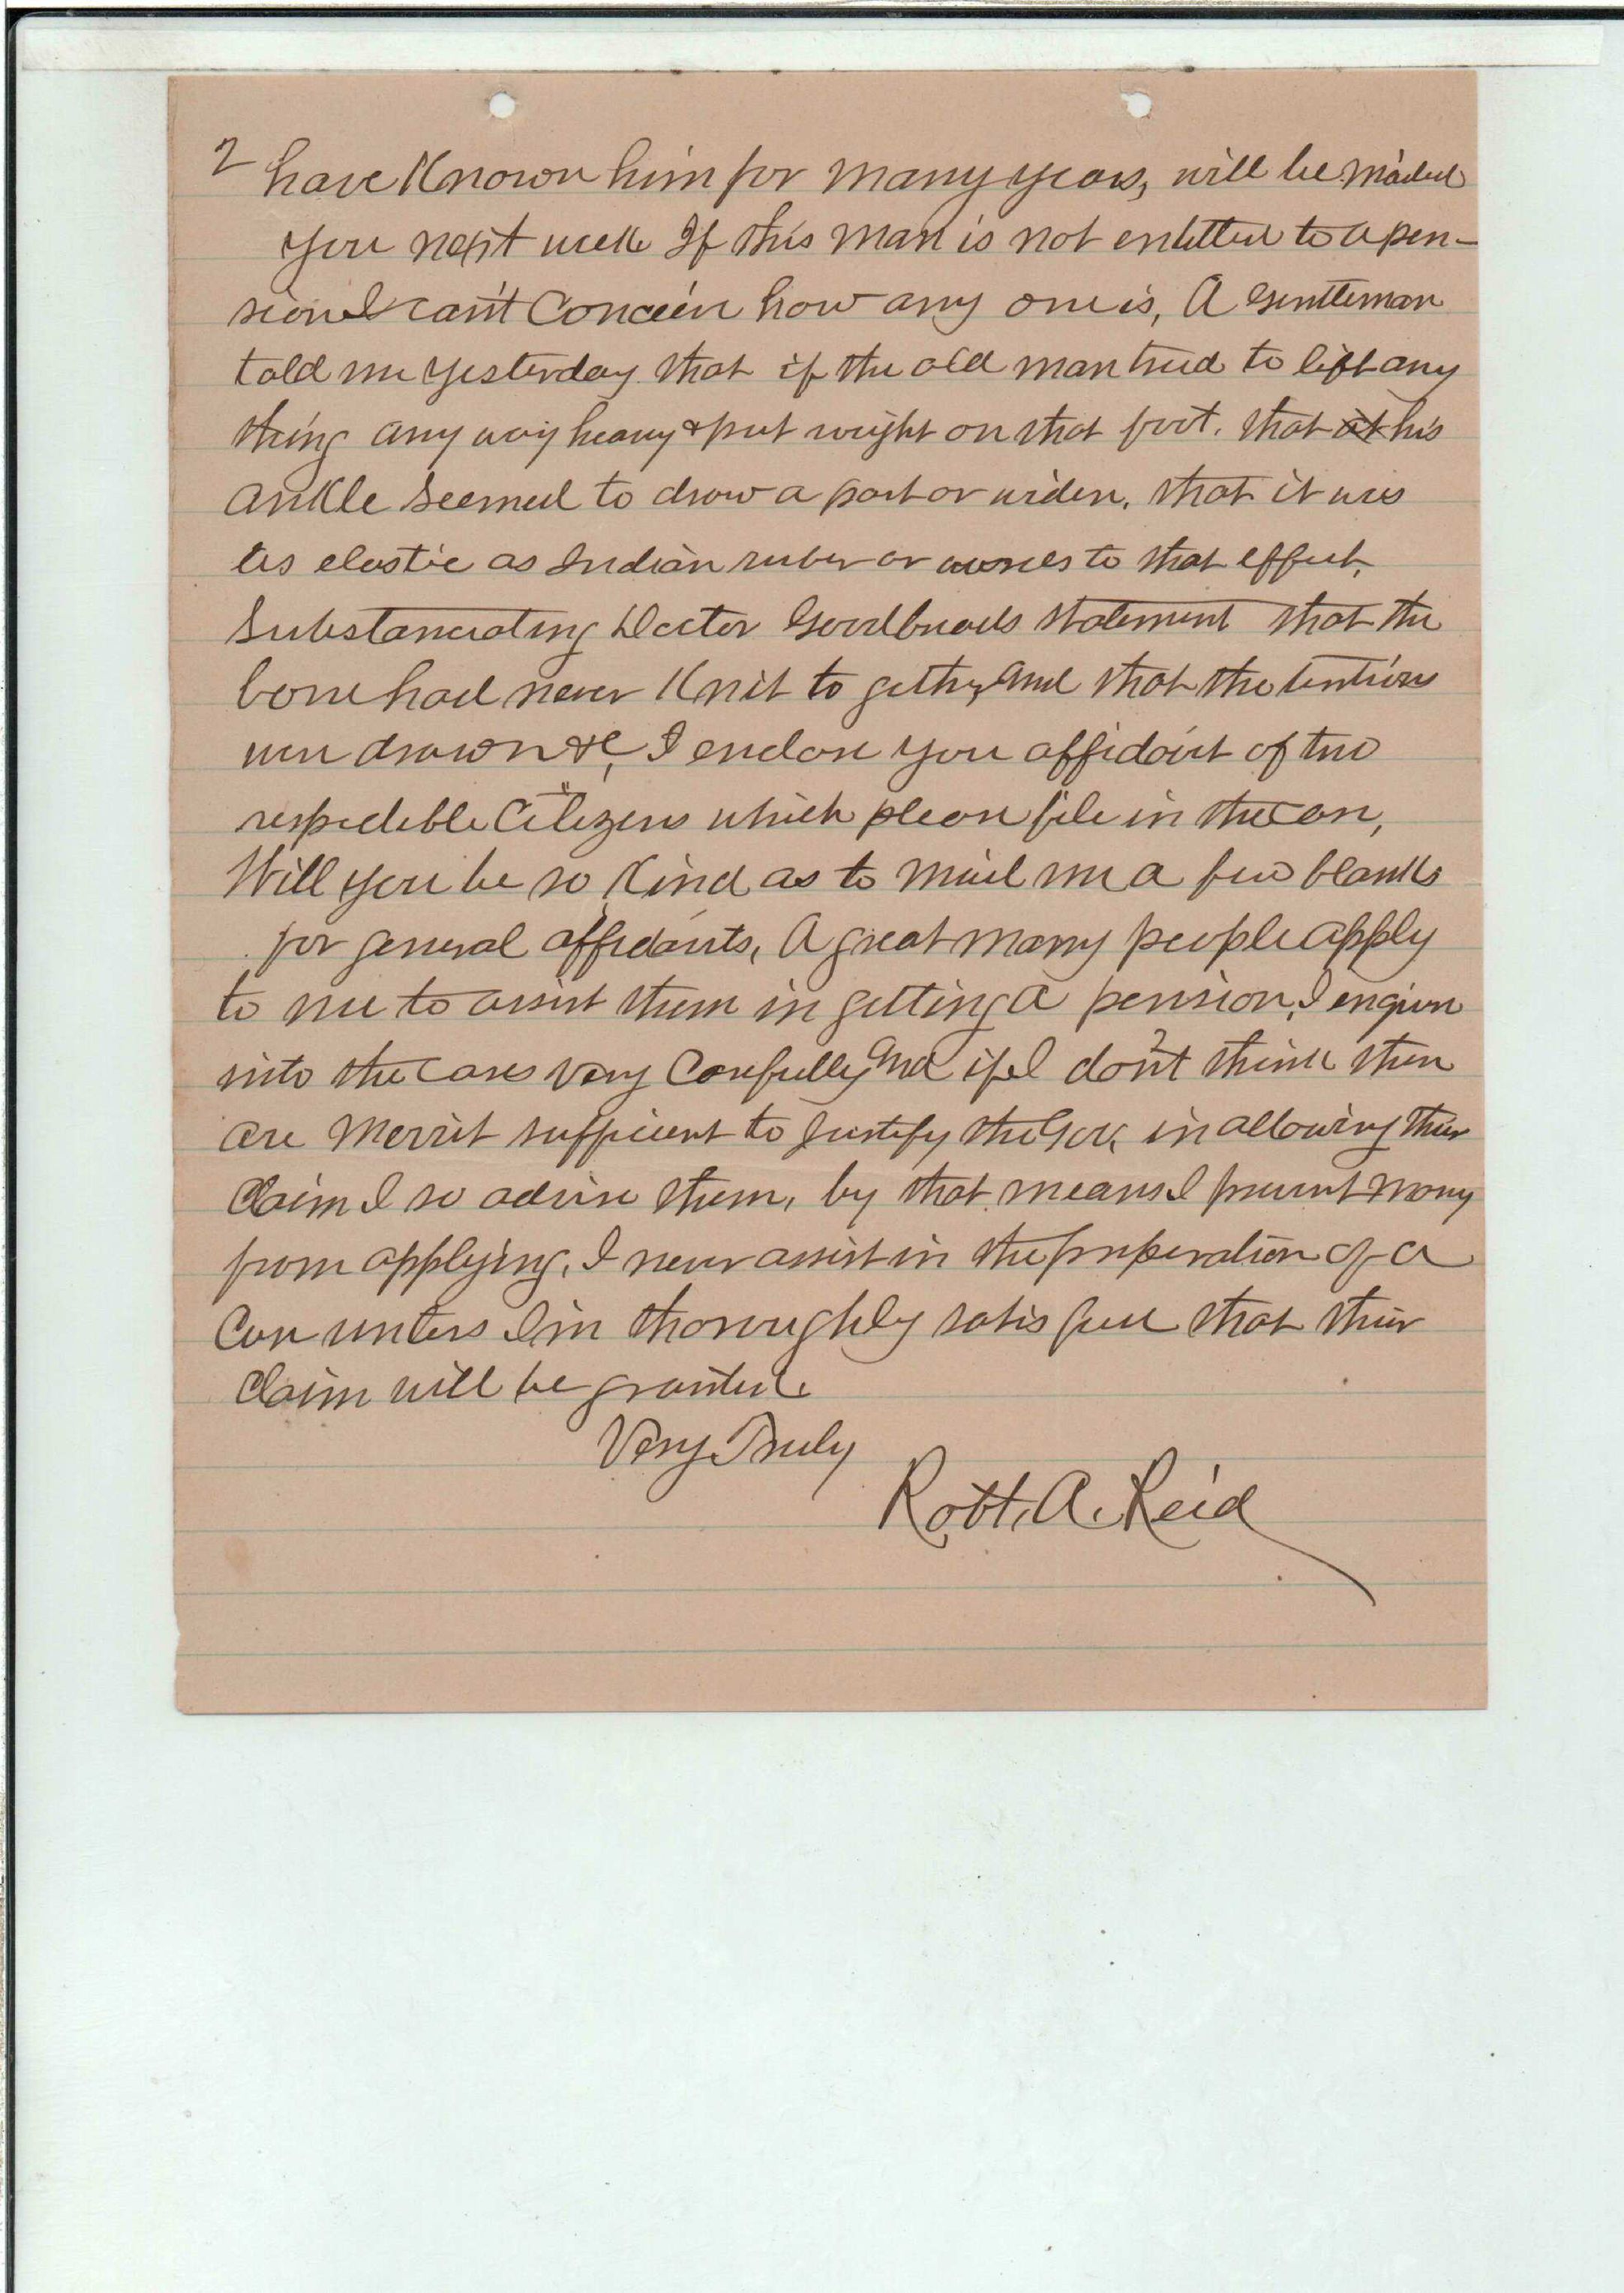 2 have Known him for many years, will be mailed
you next week If this man is not entitled to a pen-
sion I can't Conceive how any one is, A gentleman
told me yesterday that if the old man tried to lift any
thing any way heavy & put weight on that foot. that it his
ankle seemed to draw a part or widen, that it was
as elastic as Indian ruber or words to that effect,
Substanciating Doctor statement that the
bone had never Knit to gether, and that the
were drawn &c, I enclose you affidavit of two
respectible Citizens which please file in the case,
Will you be so Kind as to mail me a few blanks
for general affidavits, A great many people apply
to me to assist them in getting a pension, I enquire
into the cases very Carefully and if I don't think there
are Merrit sufficient to Justify the Gov. in allowing their
Claim I so advise them, by that means I prevent many
from applying, I never assist in the preperation of a
Case unless I'm thoroughly satisfied that their
Claim will be granted.
Very Truly
Robt. A. Reid